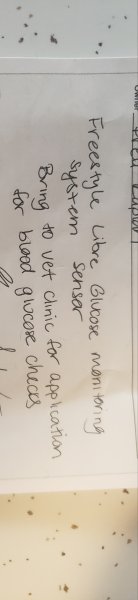 Freestyle Libre Glucose monitoring
system sensor
Bring to vet clinic for application
for blood glucose checks